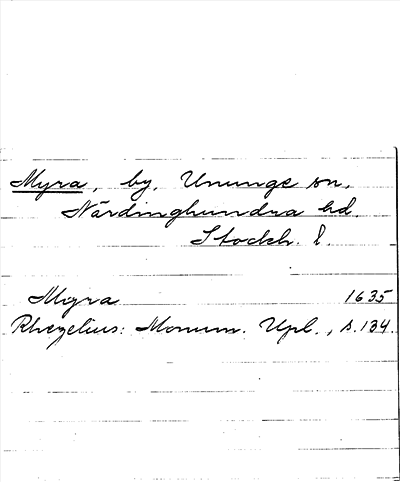 Myra, by, Ununge sn.
Närdinghundra hd.
Stockh. l.
Myra 1635
Rhezelius: Monum. Upl., s. 134.